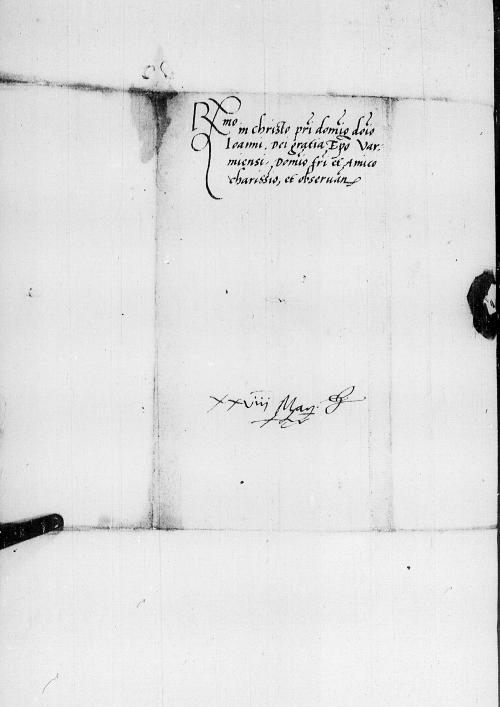 Rmo
in christo pri domio doio
Ioanni. Dei gratia Epo Var
miensi. Domio fri et Amico
charissio, et observan
xxviij Maij